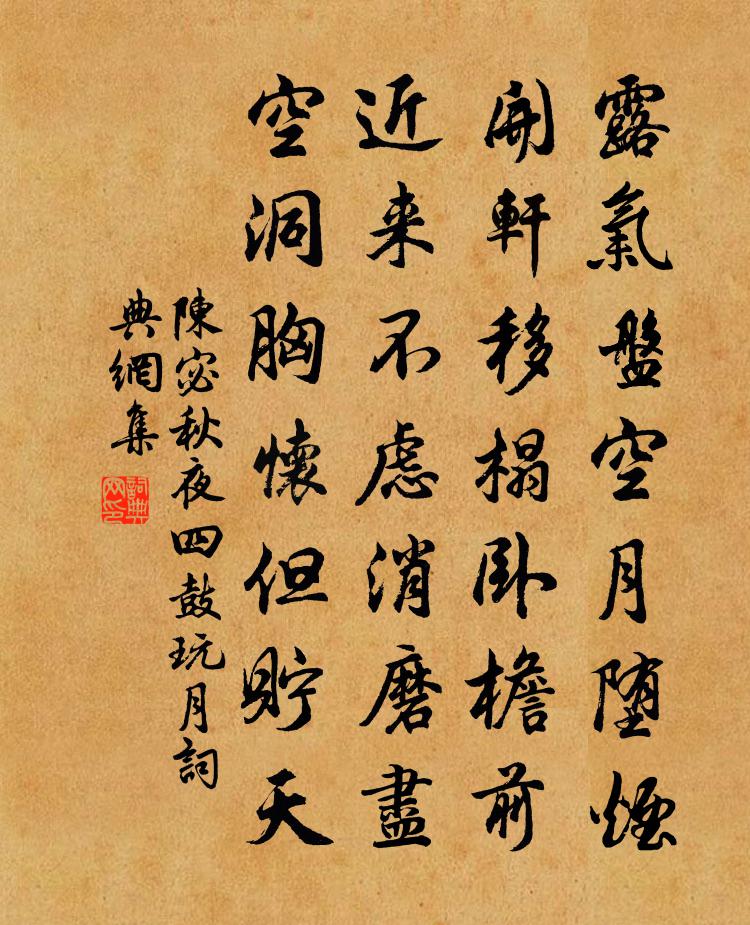 露氣盤空月墮煙
開軒移榻臥檐前
近来不慮消磨盡
空洞胸懷但貯天
陳宓秋夜四鼓玩月詞
典網集
詞典网印